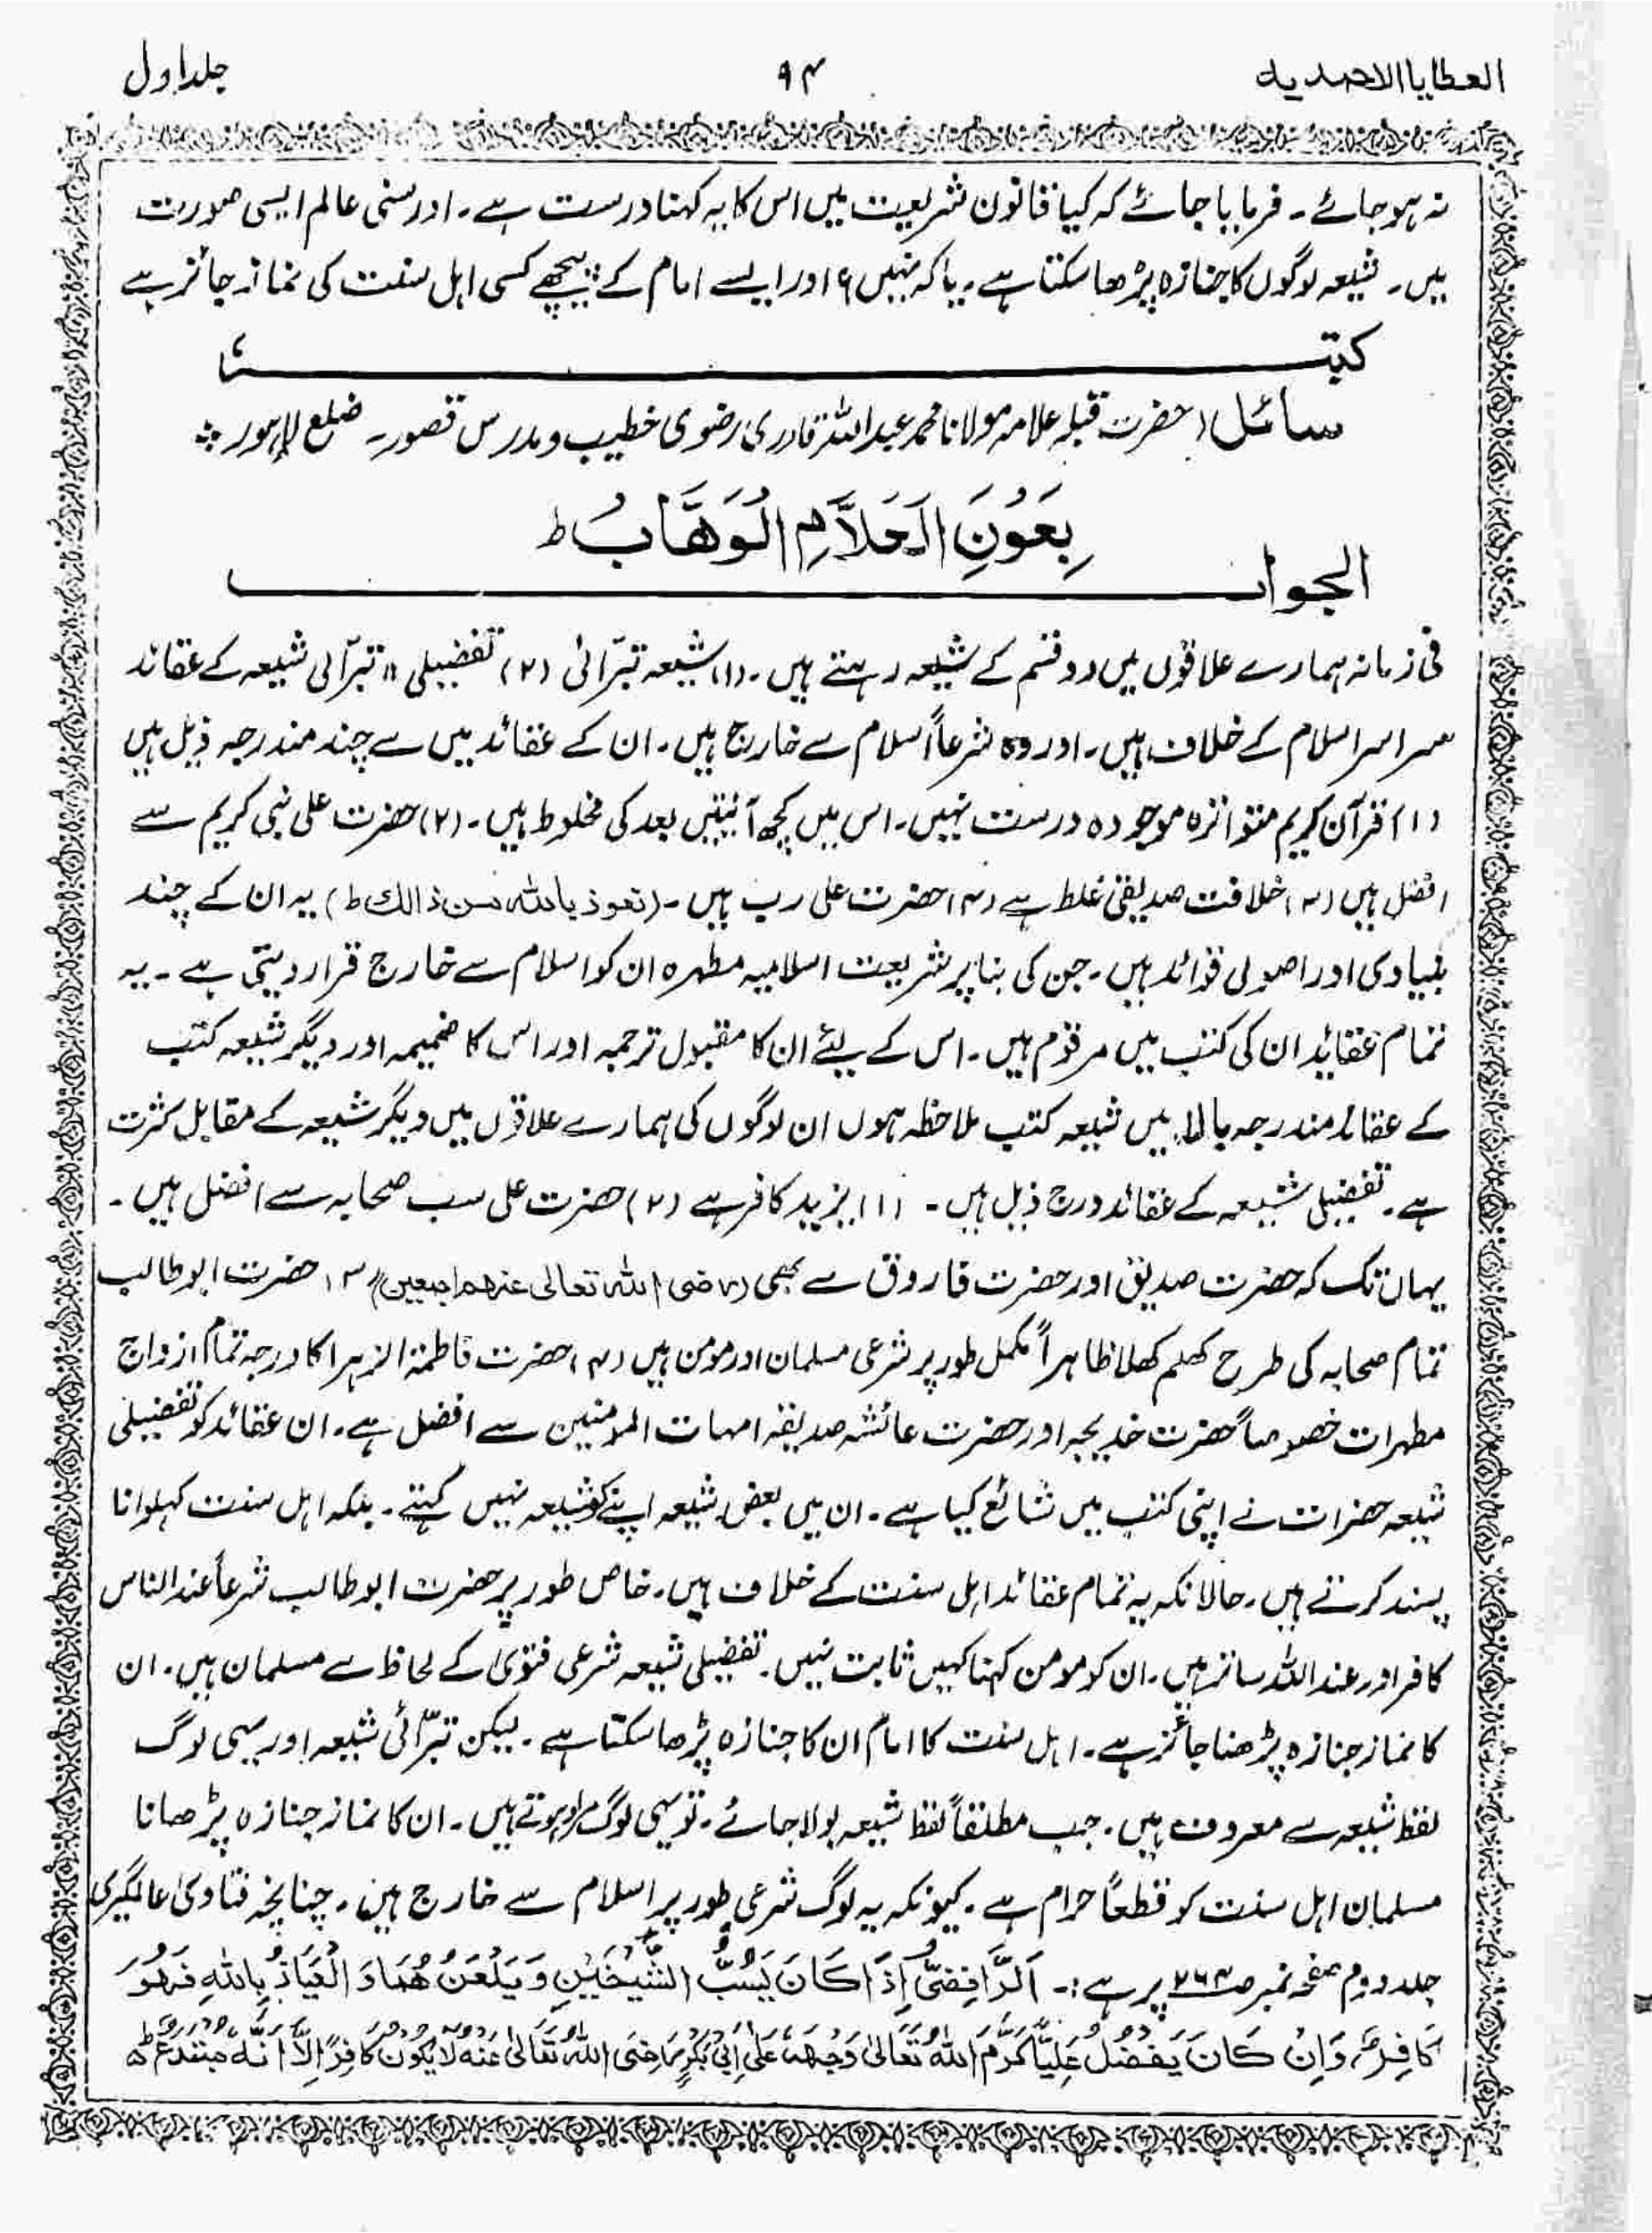 العطایا الاحمدیہ ۹۴ جلد اول
نہ ہو جائے۔ فرمایا جائے کہ کیا قانون شریعت میں اس کا یہ کہنا درست ہے۔ اور سنی عالم ایسی صورت
میں۔ شیعہ لوگوں کا جنازہ پڑھا سکتا ہے۔ یا کہ نہیں؟ اور ایسے امام کے پیچھے کسی اہل سنت کی نماز جائز ہے
سائل: حضرت قبلہ علامہ مولانا محمد عبداللہ قادری رضوی خطیب و مدرس قصور۔ ضلع لاہور
بِعَوْنِ الْعَلَّامِ الْوَهَّابُ ط
الجواب
فی زمانہ ہمارے علاقوں میں دو قسم کے شیعہ رہتے ہیں۔ (۱) شیعہ تبرّائی (۲) تفضیلی ۔ تبرّائی شیعہ کے عقائد
سراسر اسلام کے خلاف ہیں۔ اور وہ شرعاً اسلام سے خارج ہیں۔ ان کے عقائد میں سے چند مندرجہ ذیل ہیں
(۱) قرآن کریم متواترہ موجودہ درست نہیں۔ اس میں کچھ آئیتیں بعد کی مخلوط ہیں۔ (۲) حضرت علی نبی کریم سے
افضل ہیں (۳) خلافت صدیقی غلط ہے (۴) حضرت علی رب ہیں۔ (نعوذ باللہ من ذالك ط) یہ ان کے چند
بنیادی اور اصولی قوائد ہیں۔ جن کی بنا پر شریعت اسلامیہ مطہرہ ان کو اسلام سے خارج قرار دیتی ہے۔ یہ
تمام عقائد ان کی کتب میں مرقوم ہیں۔ اس کے لیئے ان کا مقبول ترجمہ اور اس کا ضمیمہ اور دیگر شیعہ کتب
کے عقائد مندرجہ بالا میں شیعہ کتب ملاحظہ ہوں ان لوگوں کی ہمارے علاقوں میں دیگر شیعہ کے مقابل کثرت
ہے۔ تفضیلی شیعہ کے عقائد درج ذیل ہیں۔ (۱) یزید کافر ہے (۲) حضرت علی سب صحابہ سے افضل ہیں۔
یہاں تک کہ حضرت صدیق اور حضرت فاروق سے بھی (رضی اللہ تعالی عنہم اجمعین) (۳) حضرت ابو طالب
تمام صحابہ کی طرح کھلم کھلا ظاہراً مکمل طور پر شرعی مسلمان اور مومن ہیں (۴) حضرت فاطمۃ الزہرا کا درجہ تمام ازواج
مطہرات خصوصاً حضرت خدیجہ اور حضرت عائشہ صدیقہ امہات المومنین سے افضل ہے۔ ان عقائد کو تفضیلی
شیعہ حضرات نے اپنی کتب میں شائع کیا ہے۔ ان میں بعض شیعہ اپنے کو شیعہ نہیں کہتے۔ بلکہ اہل سنت کہلوانا
پسند کرتے ہیں۔ حالانکہ یہ تمام عقائد اہل سنت کے خلاف ہیں۔ خاص طور پر حضرت ابو طالب شرعاً عند الناس
کافر اور عند اللہ ساتر ہیں۔ ان کو مومن کہنا کہیں ثابت نہیں۔ تفضیلی شیعہ شرعی فتویٰ کے لحاظ سے مسلمان ہیں۔ ان
کا نماز جنازہ پڑھنا جائز ہے۔ اہل سنت کا امام ان کا جنازہ پڑھا سکتا ہے۔ لیکن تبرّائی شیعہ اور یہی لوگ
لفظ شیعہ سے معروف ہیں۔ جب مطلقاً لفظ شیعہ بولا جائے۔ تو یہی لوگ مراد ہوتے ہیں۔ ان کا نماز جنازہ پڑھانا
مسلمان اہل سنت کو قطعاً حرام ہے۔ کیونکہ یہ لوگ شرعی طور پر اسلام سے خارج ہیں۔ چنانچہ فتاویٰ عالمگیری
جلد دوم صفحہ نمبر ص۲۶۴ پر ہے:۔ اَلرَّافِضِیُّ اِذَا کَانَ یَسُبُّ الشَّیْخَیْنِ وَ یَلْعَنُ هُمَا وَ الْعَیَاذُ بِاللهِ فَهُوَ
کَافِرٌ وَ اِنْ کَانَ یَفْضُلُ عَلِیًّا کَرَّمَ اللهُ تَعَالیٰ وَجْهَهٗ عَلیٰ اَبِیْ بَکْرٍ رَضِیَ اللهُ تَعَالیٰ عَنْهُ لَا یَکُوْنُ کَافِرًا اِلَّا اَنَّهٗ مُبْتَدِعٌ ط